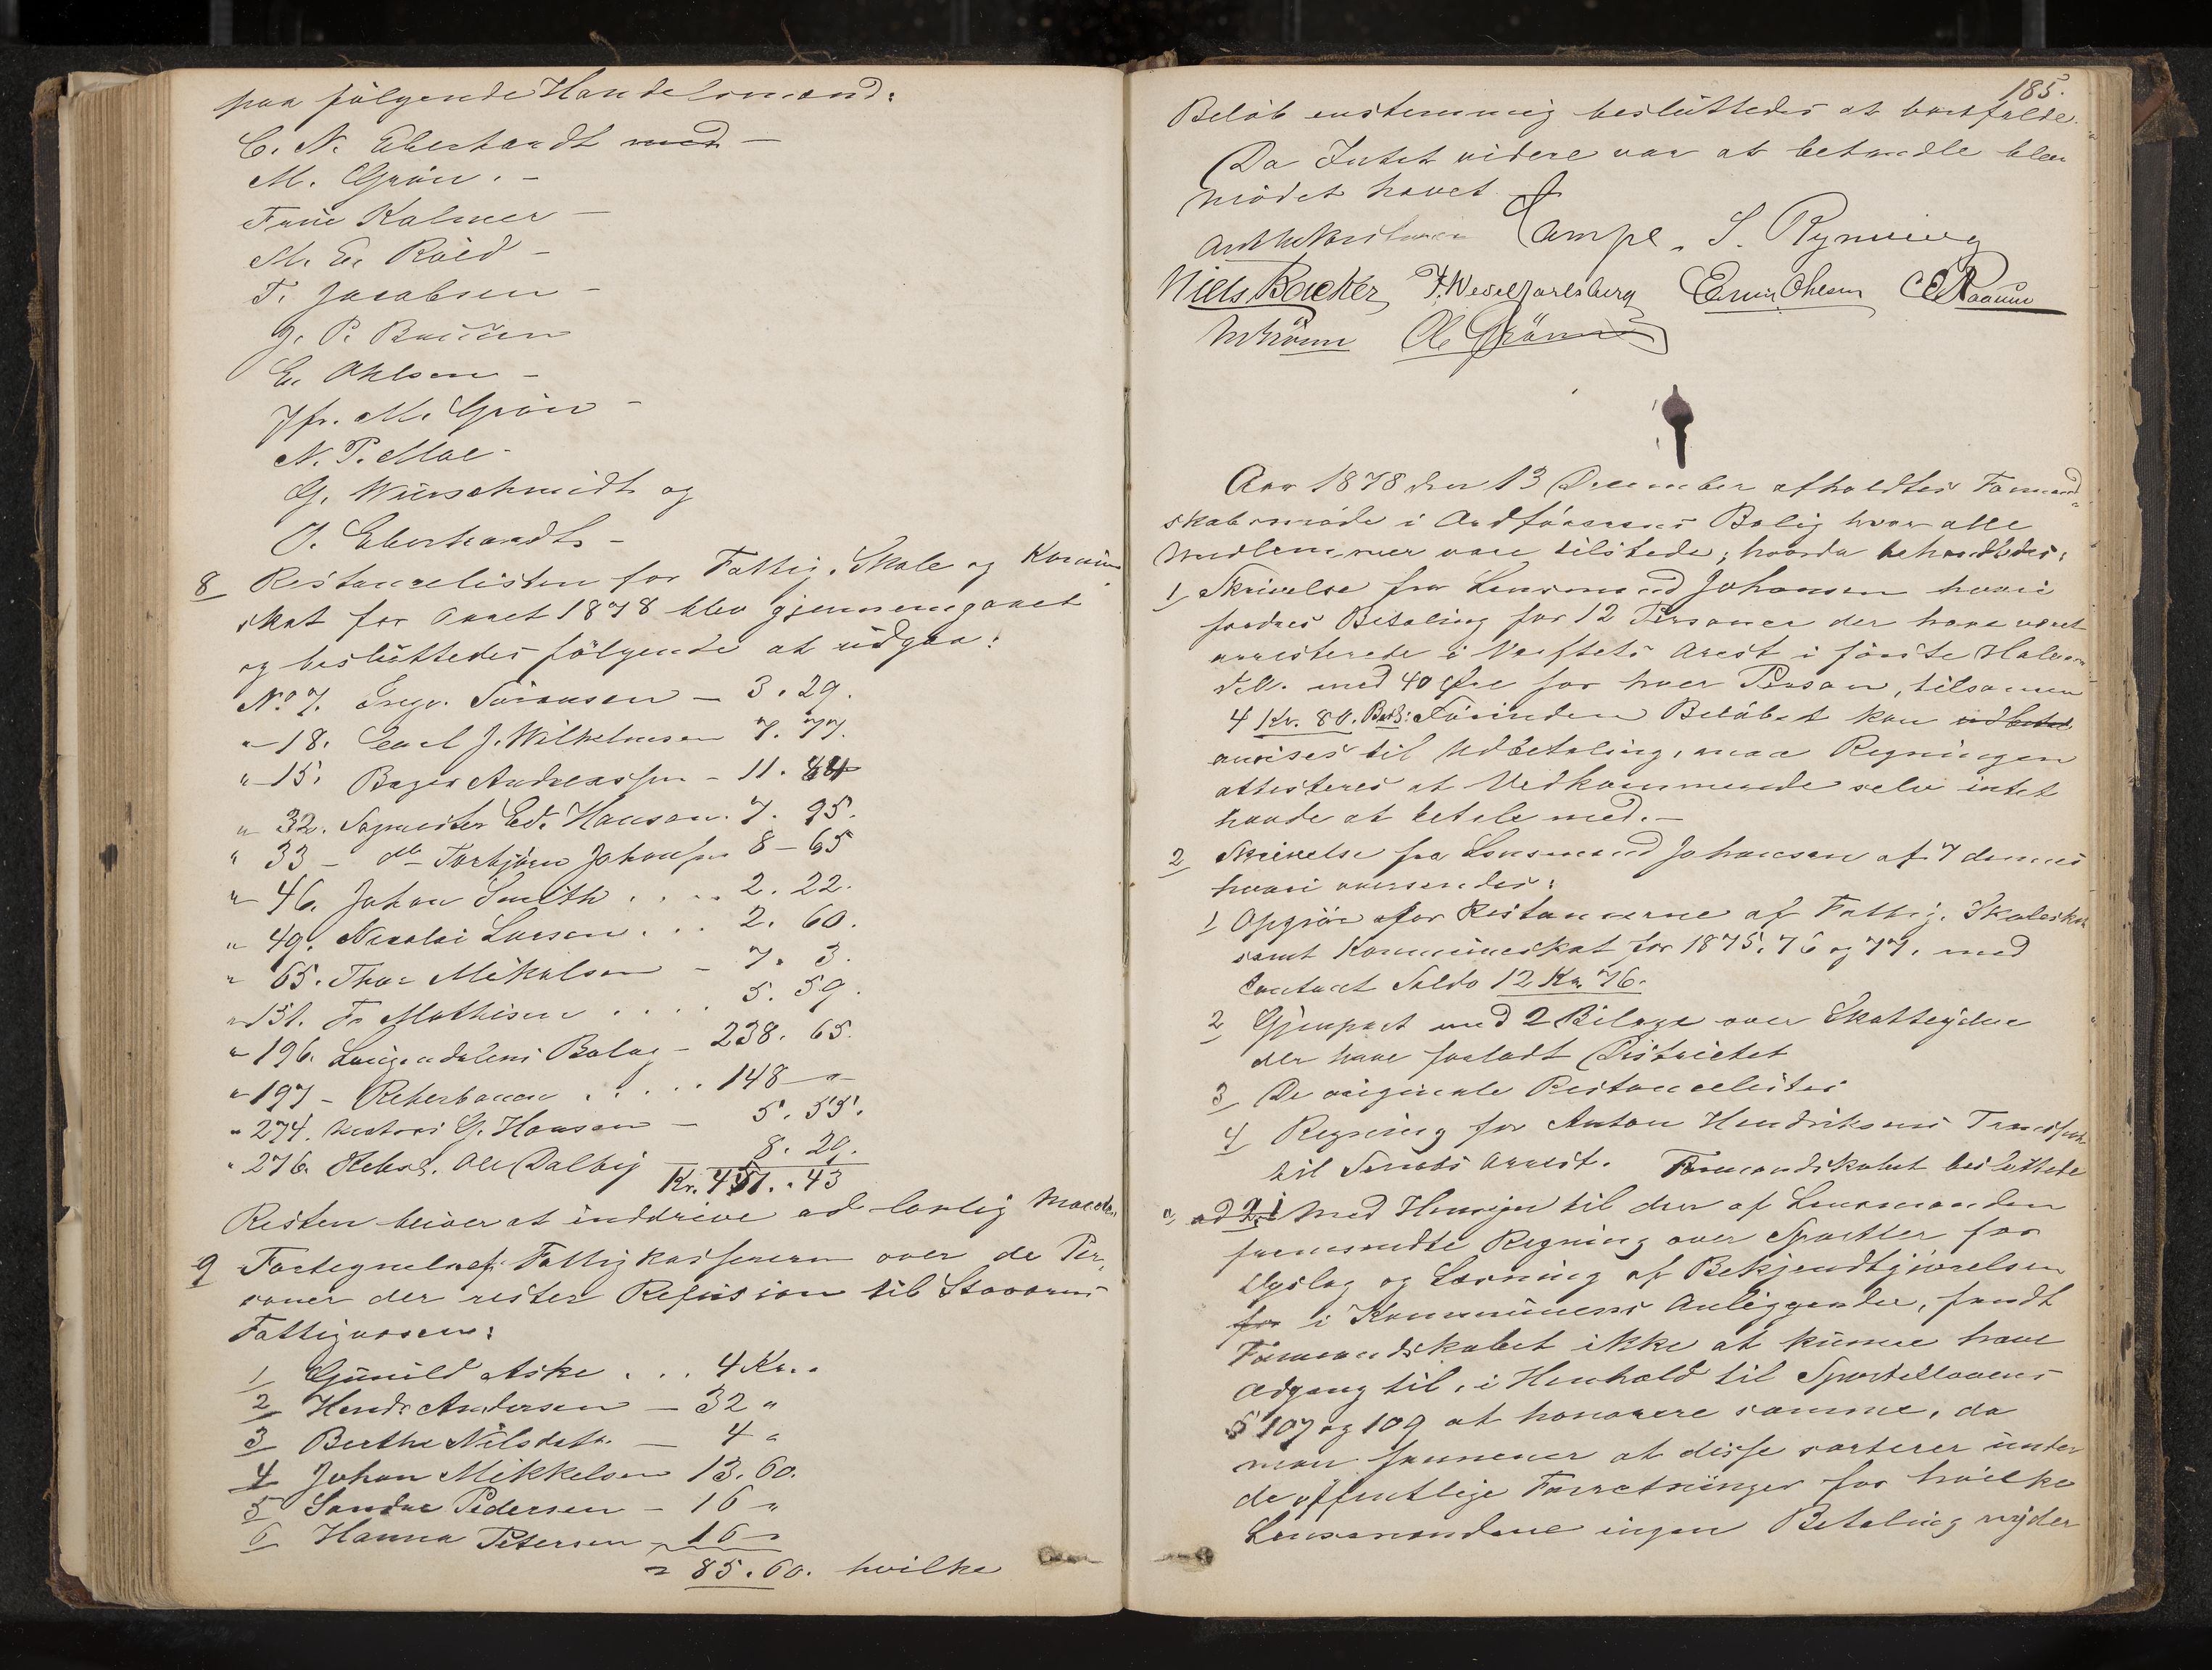 paa følgende Handelsmænd:
C. N. Eberhardt med —
M. Grøn. -
Frue Kalmer —
M. E. Røed -
T. Jacobsen -
J. P.
E. Ohlsen -
Jfr. M. Grøn -
N. P. Moe -
G. Würschmidt og
J. Eberhardt -
8 Restancelisten for Fattig, Skole og Kommune
skat for Aaret 1878 blev gjennemgaaet
og besluttedes følgende at udgaa:
No 7. Grego. Sørensen — 3. 29.
" 18. Carl J. Wilhelmsen 7. 77.
" 15. Bager Andreassen - 11. 84
" 32. Sagmester Ed. Hansen. 7. 95.
" 33 - do Torbjørn Johansen 8 - 65
" 46. Johan Smith . . . . 2. 22.
" 49. Nicolai Larsen . . . 2. 60.
" 65. Thor Mikalsen - 7. 3.
" 131. Fr Mathisen . . . . 5. 59.
" 196. Laugendalens Bolag - 238. 65.
" 197 - Reperbanen . . . . 148 - "
" 274. Matros G. Hansen - 5. 55.
" 276. Ole Dalby 8. 29.
Kr. 457. 43
Resten bliver at inddrive ad lovlig Maade.
9 Fortegnelse f. Fattigkassereren over de Per,
soner der rester Refusion til Staværns
Fattigvæsen:
1 Gunild Aske . . . 4 Kr. "
2 Hendr Andersen — 32 "
3 Berthe Nilsdatr. — 4 "
4 Johan Mikkelsen 13. 60.
5 Sandra Pedersen - 16 "
6 Hanna Petersen 16 -
= 85. 60. hvilke
185.
Beløb enstemmig besluttedes at bortfalde.
Da Intet videre var at behandle blev
Mødet hævet.
Lampe. S. Rynning
Niels Backer, F. Wedel Jarlsberg Emin Ohlsen C E Paaum
M Grønn Ol. Grønn
Aar 1878 den 13 December afholdtes Formand-
skabsmøde i Ordførerens Bolig hvor alle
Medlemmer vare tilstede; hvorda behandledes:
1 Skrivelse fra Lensmand Johansen hvori
fordres Betaling for 12 Personer der have været
arresterede i Værftets Arest i første Halvaar
d. A. med 40 Øre for hver Person, tilsammen
4 Kr. 80. Besl: Førinden Beløbet kan udbetal
anvises til Udbetaling, maa Regningen
attesteres at Vedkommende selv intet
havde at betale med. —
2 Skrivelse fra Lensmand Johansen af 7 dennes
hvori oversendes:
1 Opgjør for Restancerne af Fattig, Skoleskat
samt Kommuneskat for 1875, 76 og 77, med
Contant Saldo 12 Kr. 76.
2 Gjenpart med 2 Bilage over Skatteydere
der have forladt Districtet
3 De originale Restancelister
4 Regning for Anton Hendriksens Transport
til Arrest. Formandskabet besluttede
a, ad 2. 1 Med Hensyn til den af Lensmanden
fremsendte Regning over Sportler for
Opslag og Læsning af Bekjendtgjørelsen
for i Kommunens Anliggender, fandt
Formandskabet ikke at kunne have
Adgang til, i Henhold til Sportellovens
§ 107 og 109 at honorere samme, da
man formener at disse sorterer under
de offentlige Forretninger for hvilke
Lensmændene ingen Betaling nyder